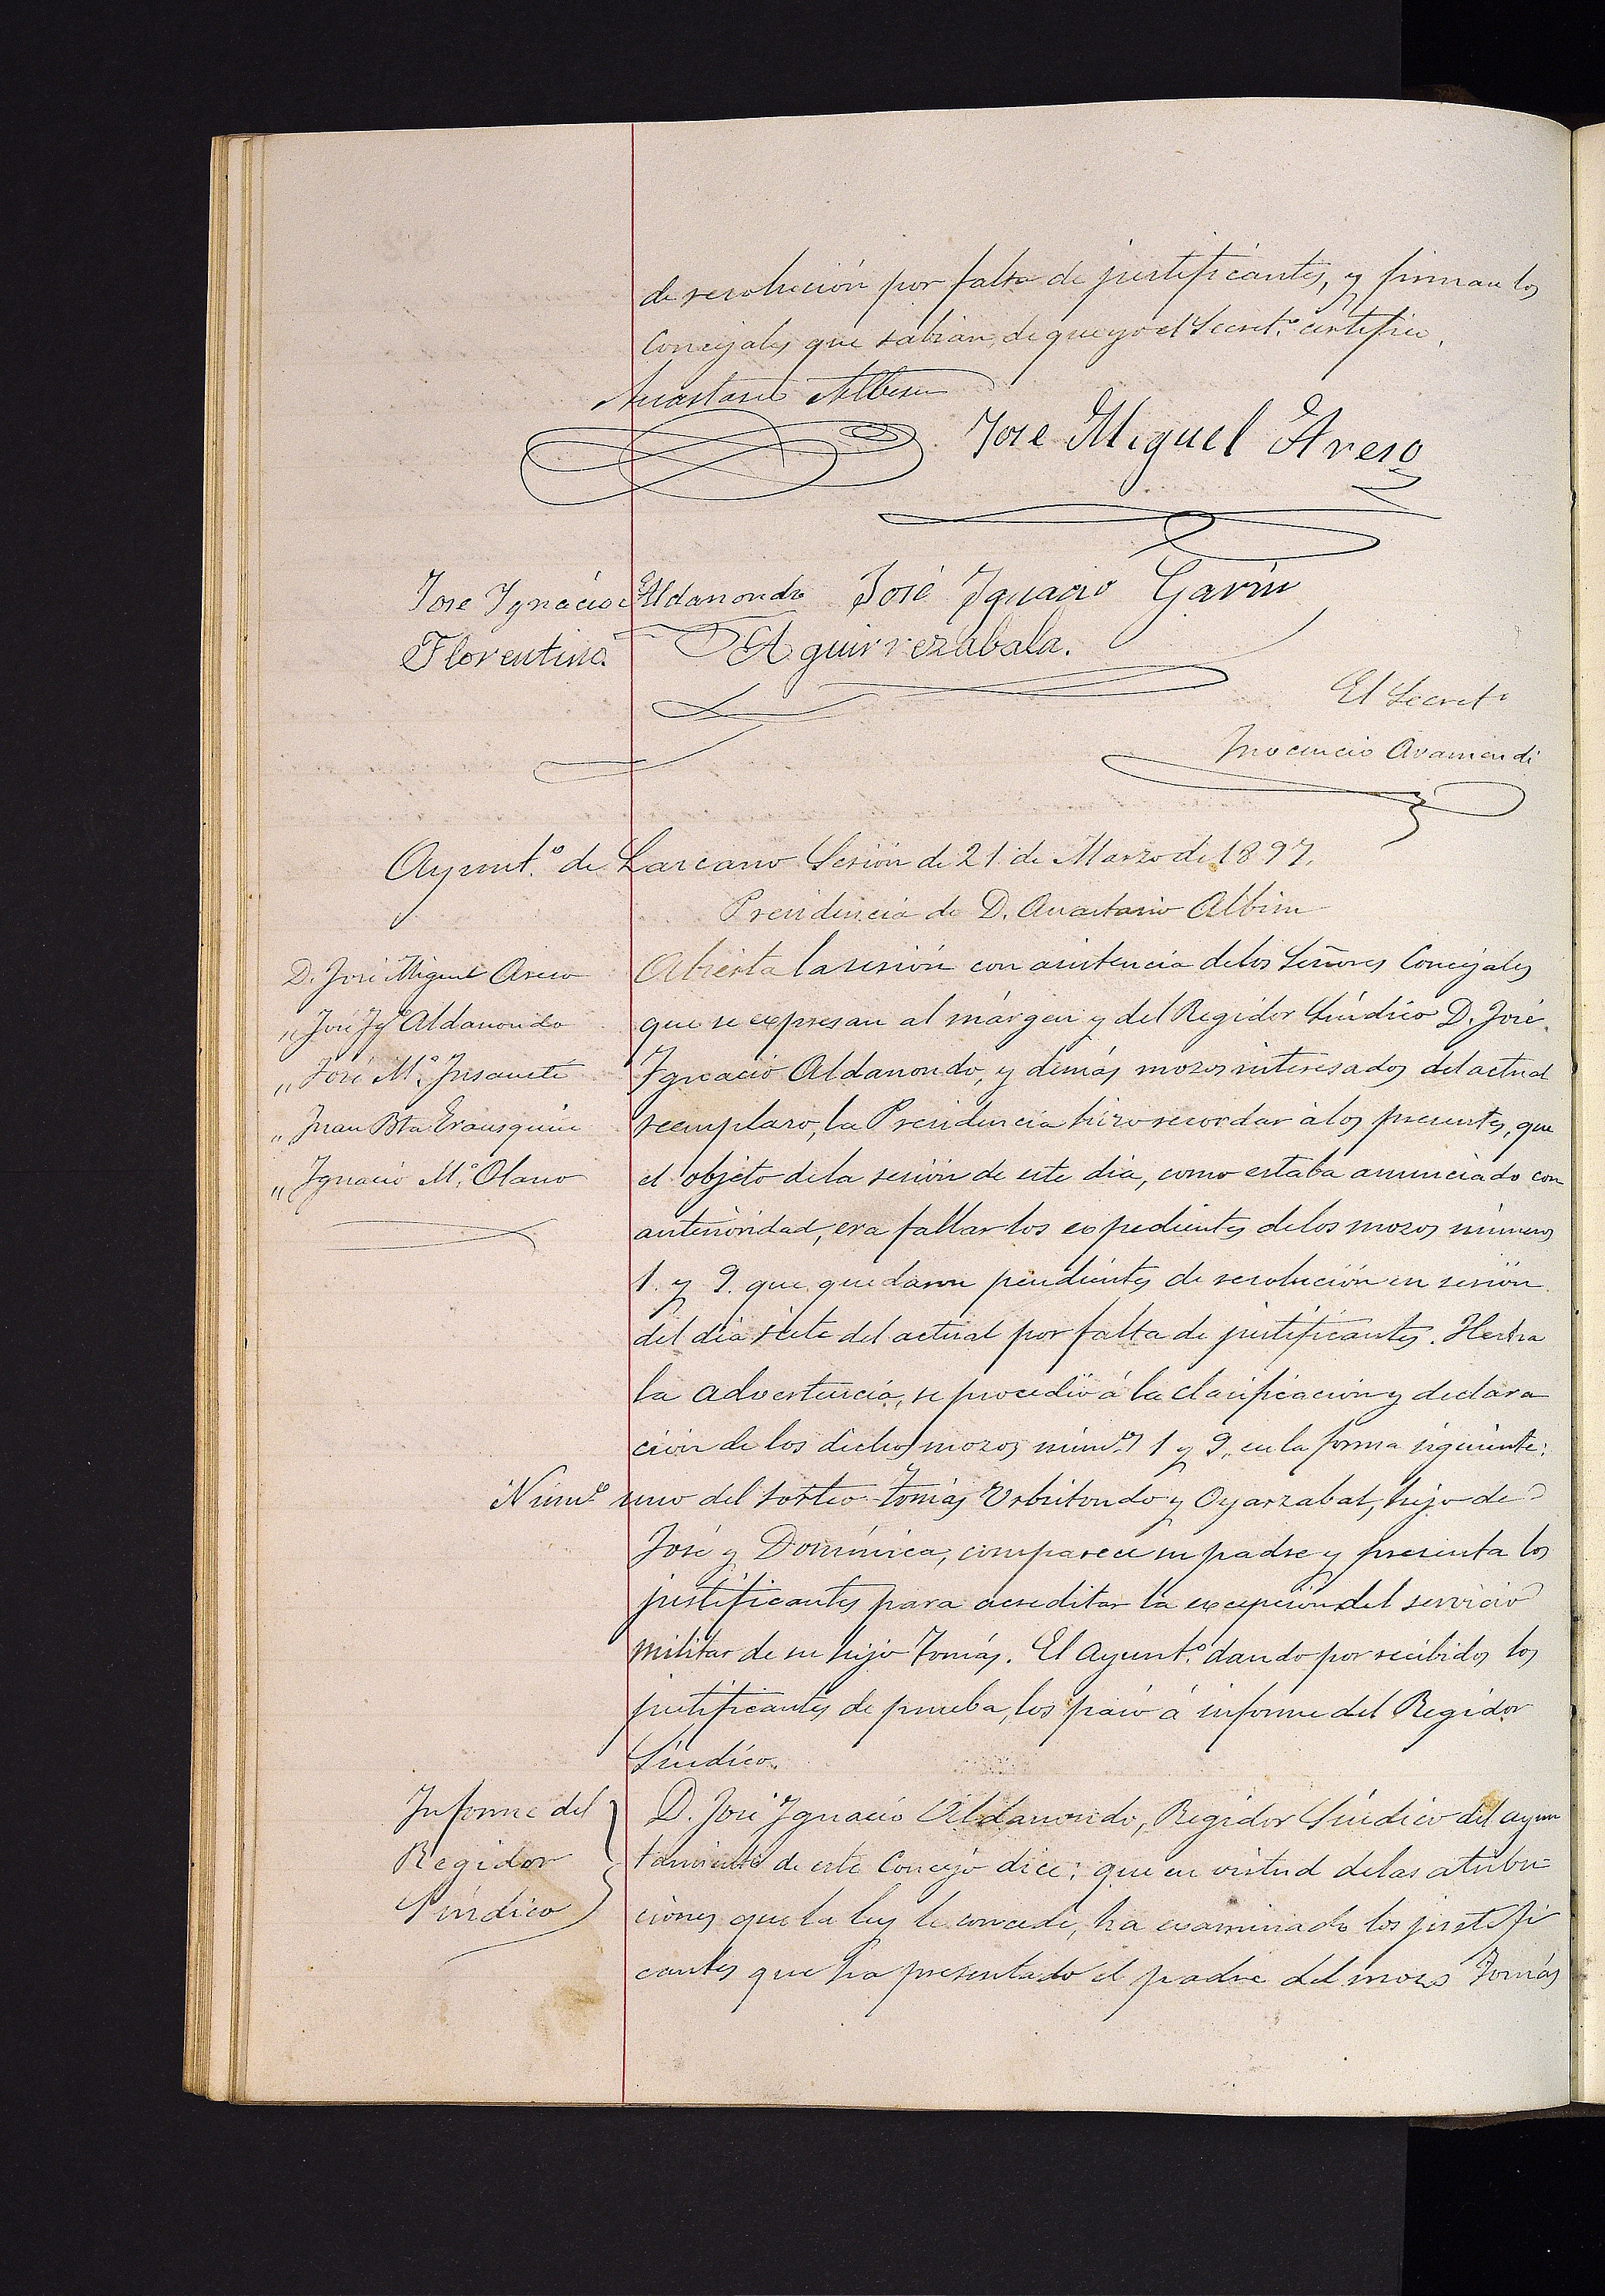 de resolución por falta de justificantes, y firman los
Concejales que sabian, de que yo el Secret.º certifico.
Anastasio Albisu
Jose Miguel Areso
Jose Ignacio Aldanondo José Ignacio Garin
Florentino Aguirrezabala.
El Secret.º
Inocencio Aramendi
Ayunt.º de Lazcano Sesión de 21 de Marzo de 1897.
Presidencia de D. Anastasio Albisu
D. José Miguel Areso
„ José Ig.º Aldanondo
„ José M.ª Insausti
„ Juan Bta Erausquin
„ Ignacio M.ª Olano
Abierta la sesión con asistencia de los Señores Concejales
que se expresan al márgen y del Regidor Síndico D. José
Ignacio Aldanondo, y demás mozos interesados del actual
reemplazo, la Presidencia hizo recordar á los presentes, que
el objeto de la sesión de este dia, como estaba anunciado con
anterioridad, era fallar los expedientes de los mozos números
1. y 9. que quedaron pendientes de resolución en sesión
del dia siete del actual por falta de justificantes. Hecha
la advertencia, se procedió á la clasificación y declara
ción de los dichos mozos núm.s 1 y 9, en la forma siguiente:
Núm.º uno del sorteo Tomás Urbitondo y Oyarzabal, hijo de
José y Dominica, comparece su padre y presenta los
justificantes para acreditar la excepción del servicio
militar de su hijo Tomás. El Ayunt.º dando por recibidos los
justificantes de prueba, los pasó á informe del Regidor
Síndico.
Informe del
Regidor
Síndico
D. José Ignacio Aldanondo, Regidor Síndico del ayun
tamiento de este Concejo dice: que en virtud de las atribu=
ciones que la ley le concede, ha examinado los justifi
cantes que ha presentado el padre del mozo Tomás